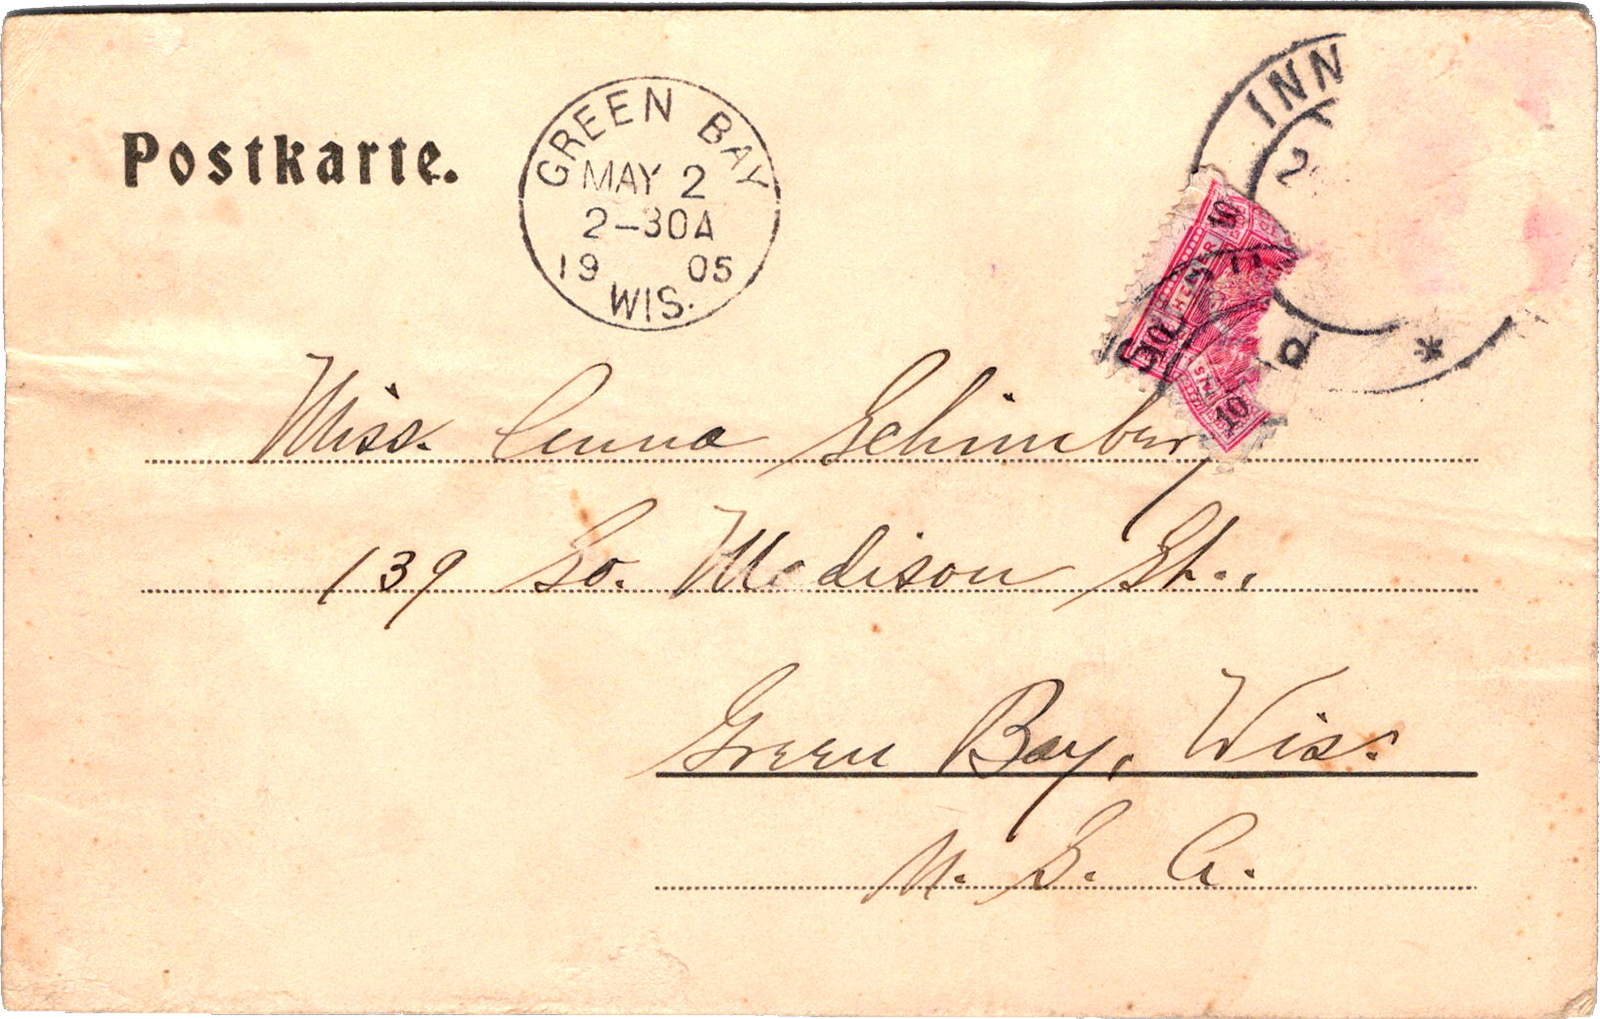 Postkarte.
GREEN BAY
MAY 2
2-30A
19 05
WIS.
INN
10
10
10
Miss. Anna Schimberg
139 So. Madison St.,
Green Bay, Wis.
U. S. A.